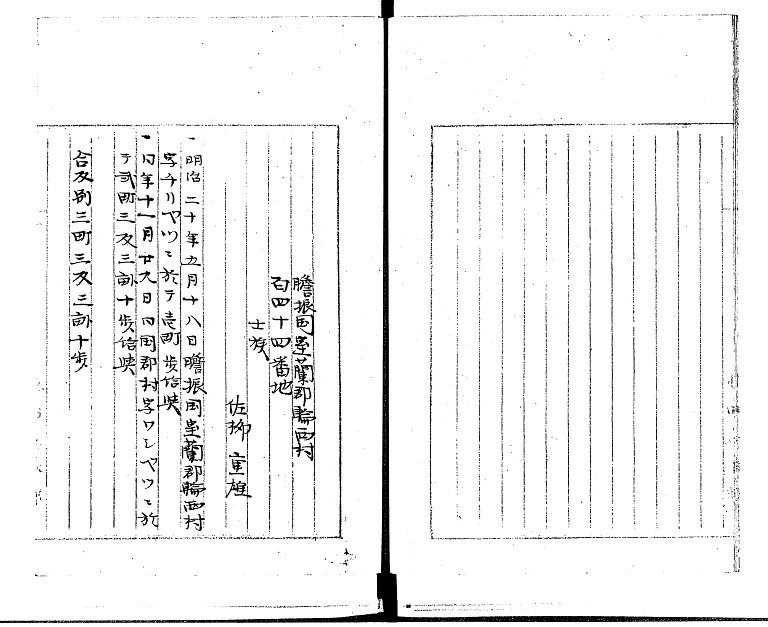 膽振国室蘭郡輪西村
百四十四番地
士族
佐柳重雄
一明治二十年五月十八日膽振国室蘭郡輪西村
字チリヤツニ於テ壱町歩信峡
一同年十一月廿九日同国郡村字ワシヤツニ於
テ弐町三反三畝十歩信峡
合反別三町三反三畝十歩